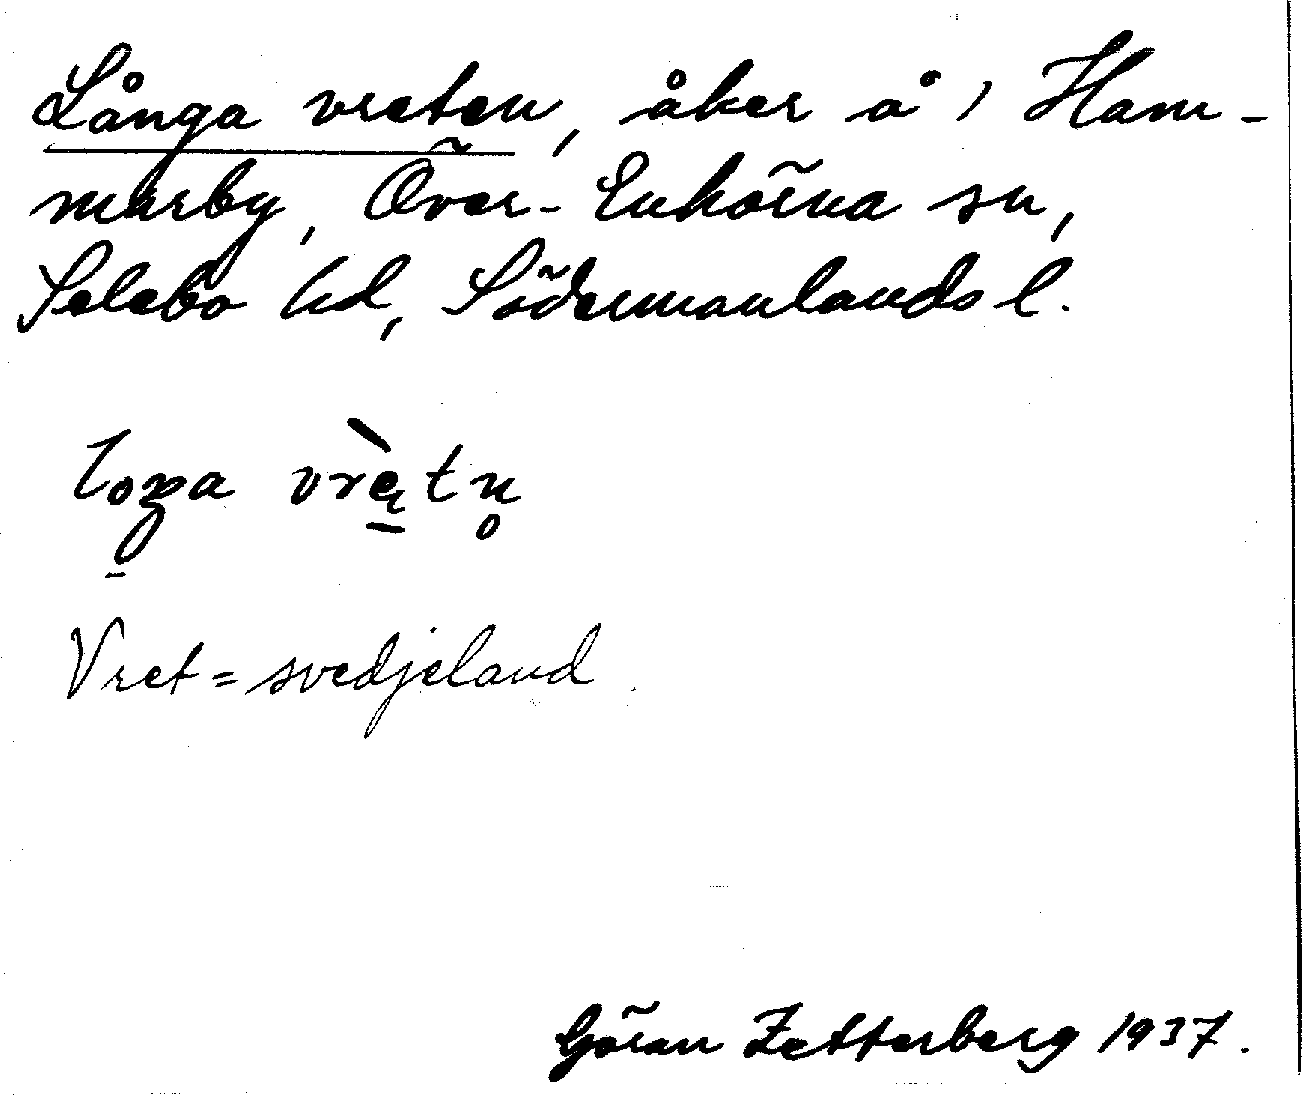 Långa vreten, åker å 1 Ham-
marby, Över-Enhörna sn,
Selebo hd, Södermanlands l.
loŋa vrètn̥
Vret = svedjeland
Göran Zetterberg 1937.